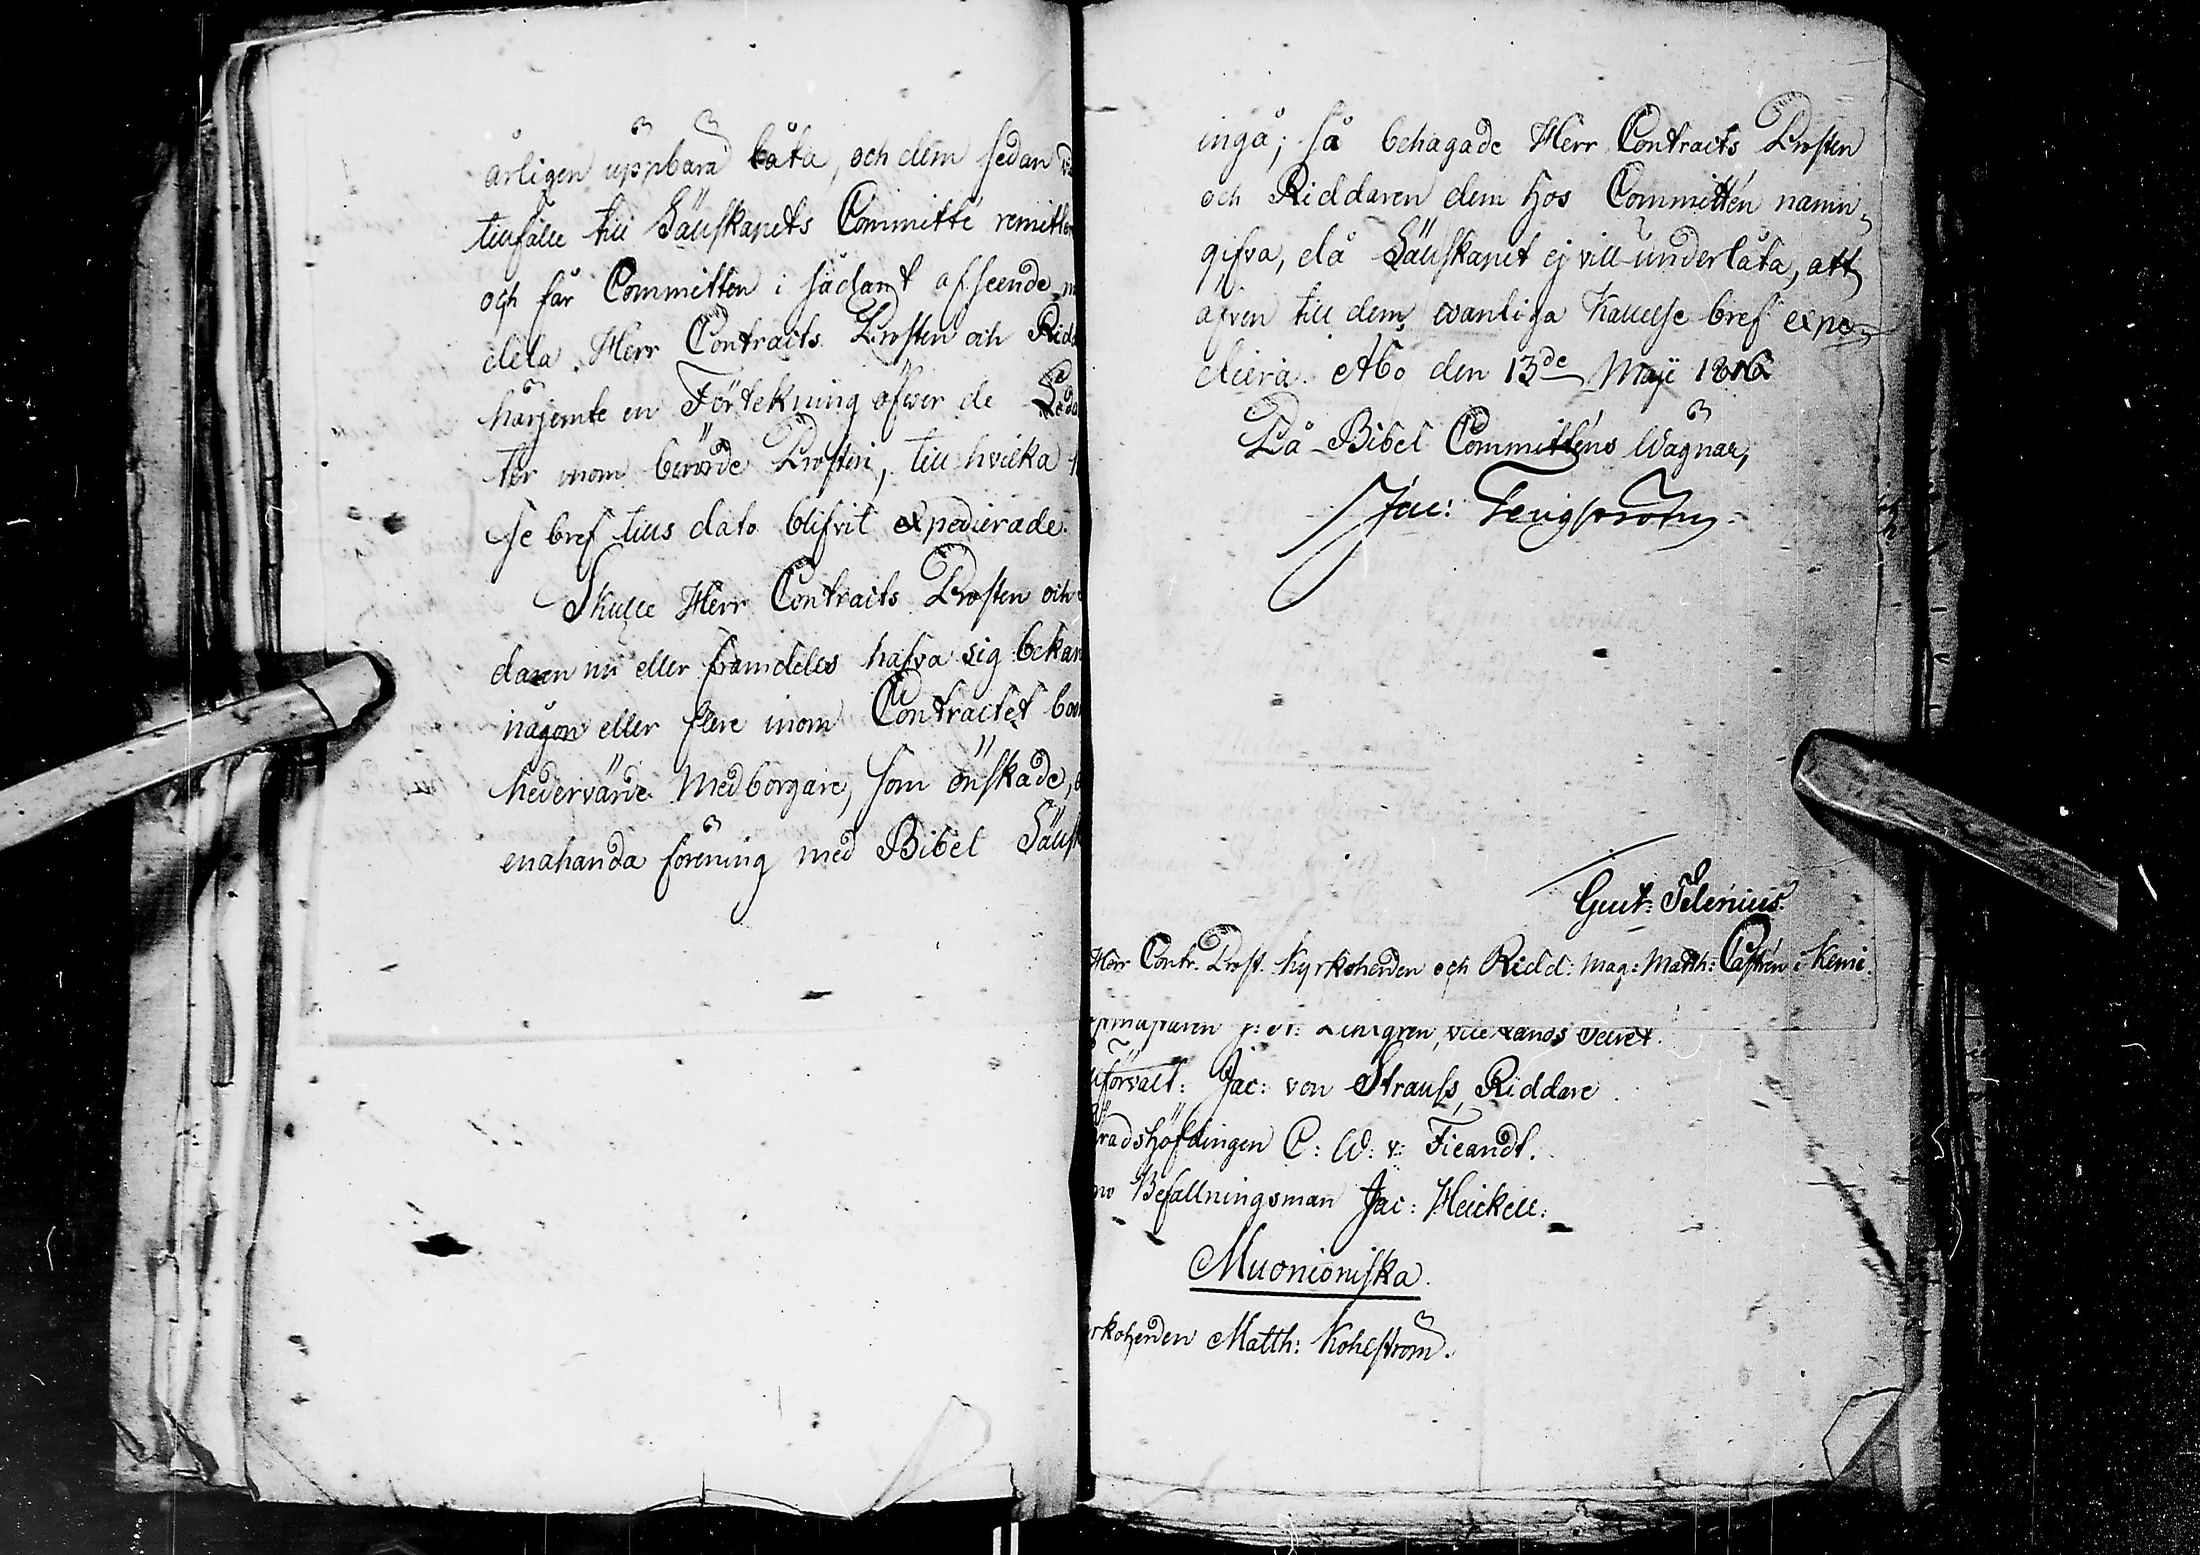 årligen uppbära låta, och dem sedan
tillfälle till Sällskapets Committé remitter
och får Committén i sådant afseende
dela Herr Contracts Prosten och Ridd
härjemte en Förtekning öfwer de Leda
ter inom berörde Prosteri, till hvilka
se bref tills dato blifvit expedierade.
Skulle Herr Contracts Prosten och
daren nu eller framdeles hafva sig bekan
någon eller flere inom Contractet boen
hedervärde Medborgare, som önskade,
enahanda förening med Bibel Sällsk
ingå; så behagade Herr Contracts Prosten
och Riddaren dem hos Committén namn-
gifva, då Sällskapet ej vill underlåta, att
äfven till dem wanliga Kallelse bref expe-
diera. Åbo den 13de Maji 1816
På Bibel Committéns Wägnar,
Jac: Tengström.
Gust: Idénius.
Herr Contr. Prost. Kyrkoherden och Ridd: Mag: Matth: Castrén i Kemi.
Lindgren, vice Lands Secret.
förvalt: Jac: von Strauss, Riddare.
radshöfdingen C: W: v: Fieandt.
no Befallningsman Jac: Heickell:
Muonioniska.
rkoherden Matth: Kohlström.